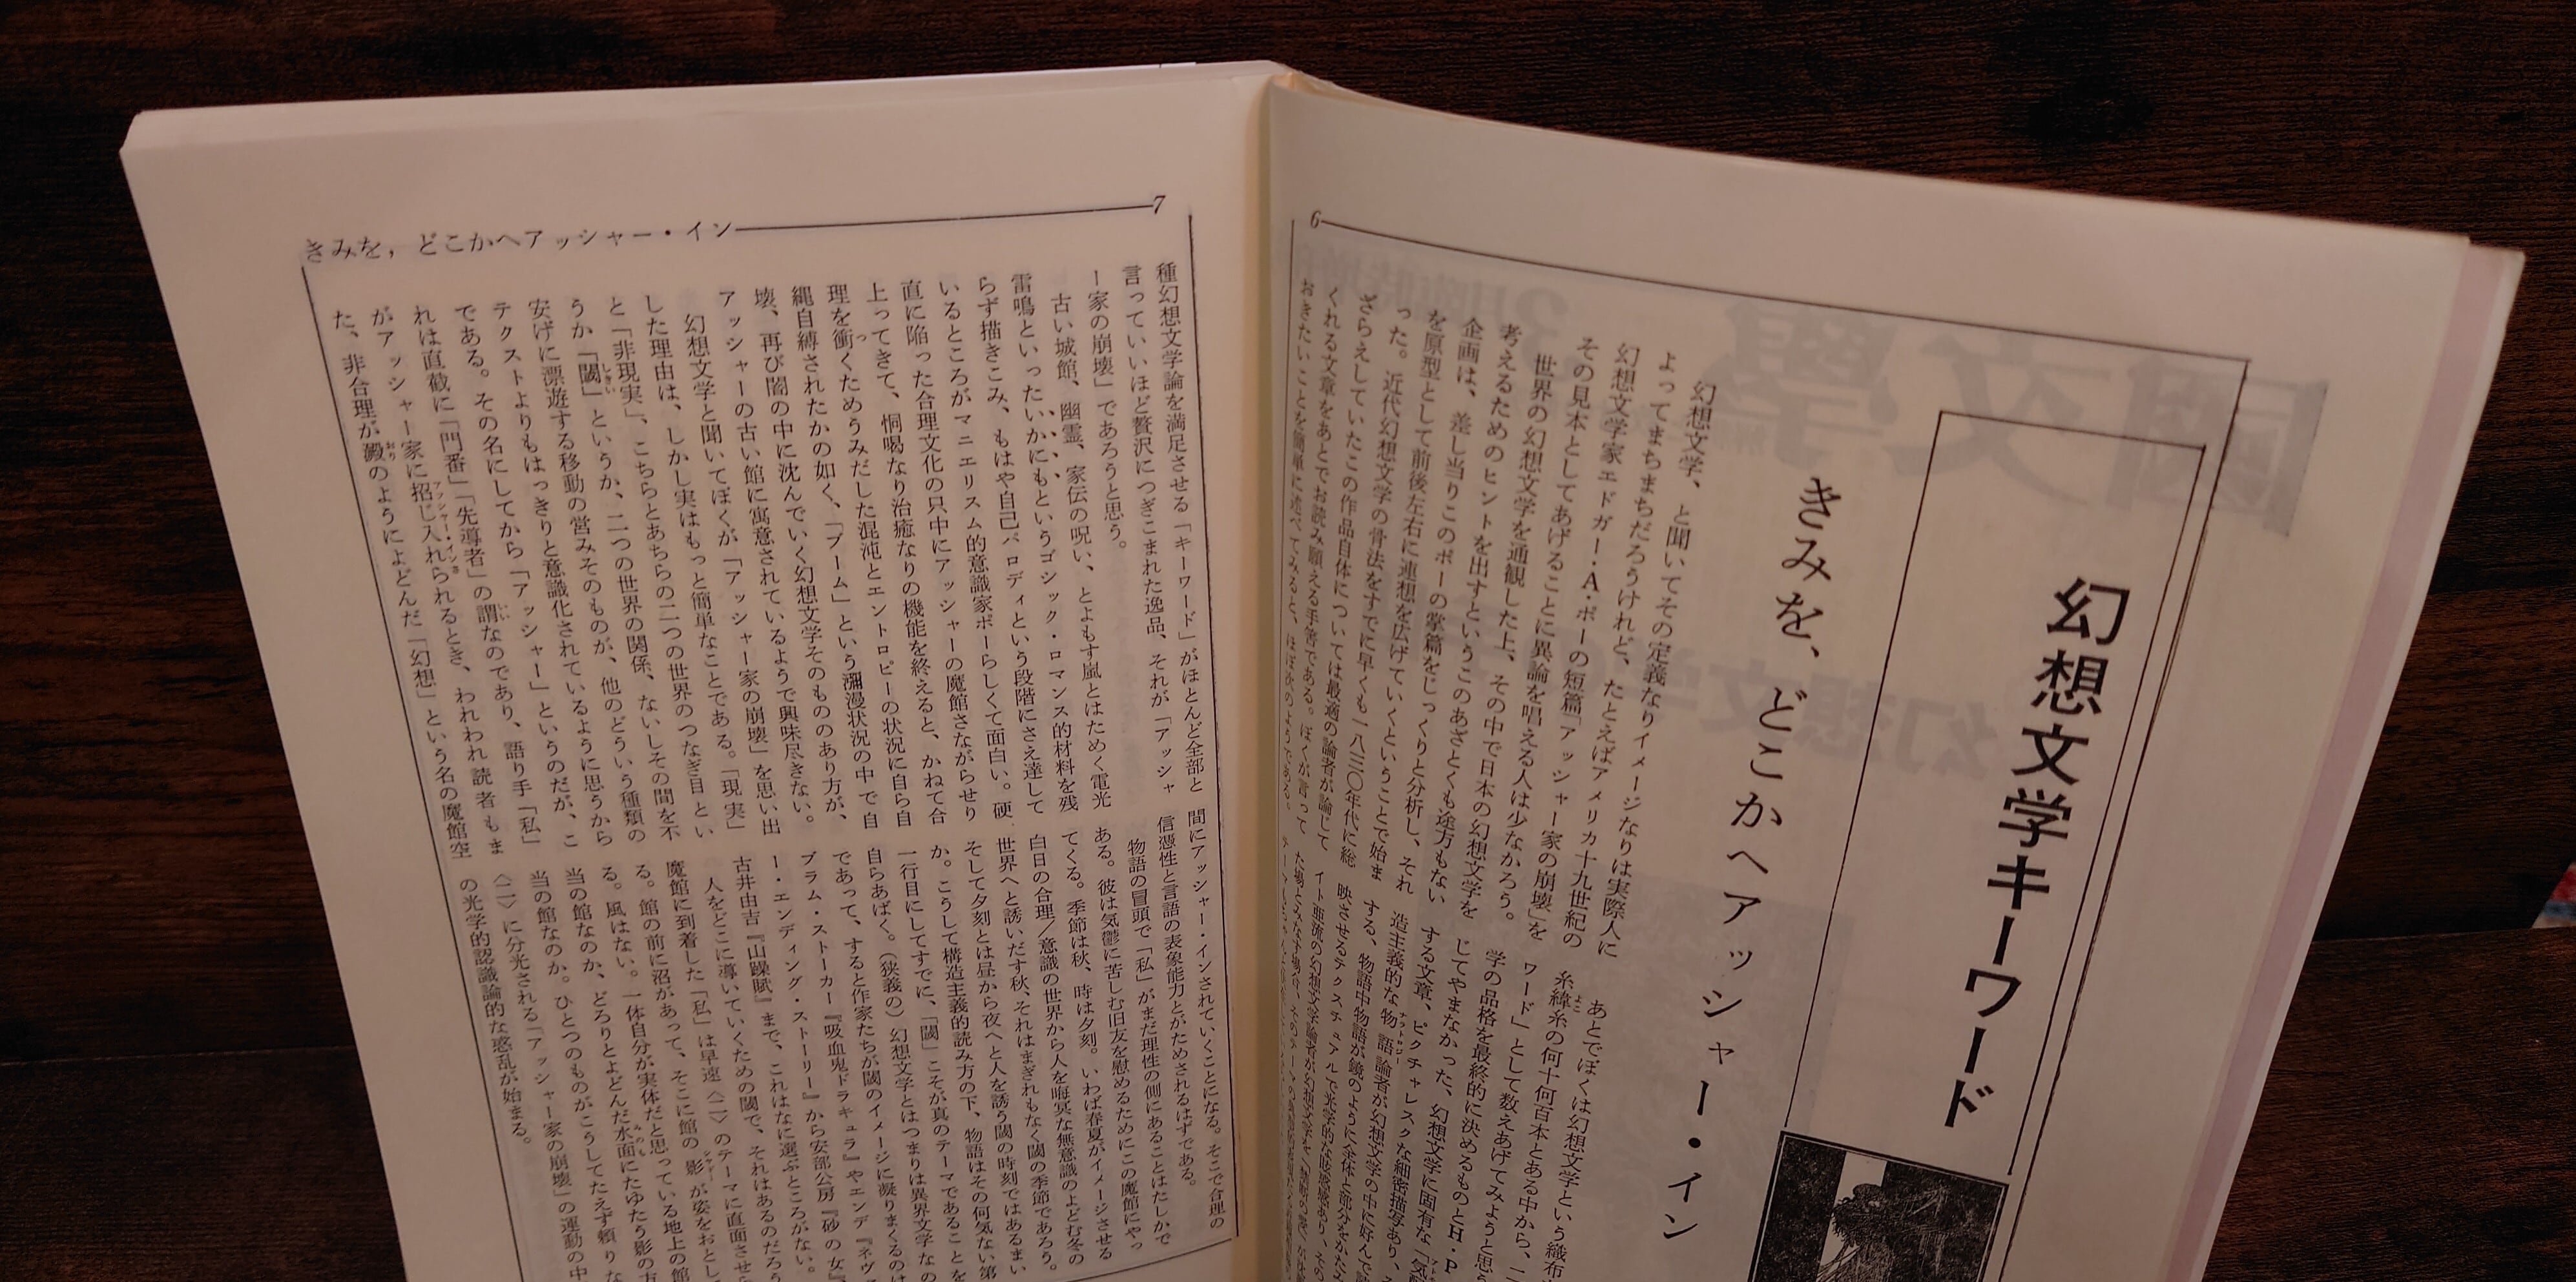 6
幻想文学キーワード
きみを、どこかへアッシャー・イン
幻想文学、と聞いてその定義なりイメージなりは実際人に
よってまちまちだろうけれど、たとえばアメリカ十九世紀の
幻想文学家エドガー・A・ポーの短篇「アッシャー家の崩壊」を
その見本としてあげることに異論を唱える人は少なかろう。
世界の幻想文学を通観した上、その中で日本の幻想文学を
考えるためのヒントを出すというこのあざとくも途方もない
企画は、差し当りこのポーの掌篇をじっくりと分析し、それ
を原型として前後左右に連想を広げていくということで始ま
った。近代幻想文学の骨法をすでに早くも一八三〇年代に総
ざらえしていたこの作品自体については最適の論者が論じて
くれる文章をあとでお読み願える手筈である。ぼくが言って
おきたいことを簡単に述べてみると、ほぼ次のようになる。
あとでぼくは幻想文学という織布
糸緯糸の何十何百本とある中から、二
ワード」として数えあげてみようと思
学の品格を最終的に決めるものとH・P
じてやまなかった、幻想文学に固有な「気
する文章、ピクチャレスクな細密描写あり、
造主義的な物語論者が幻想文学の中に好んで
する、物語中物語が鏡のように全体と部分をがた
映させるテクスチュアルで光学的な
イト亜流の幻想文学論者が幻想文学を
7
きみを，どこかへアッシャー・イン
種幻想文学論を満足させる「キーワード」がほとんど全部と
言っていいほど贅沢につぎこまれた逸品、それが「アッシャ
ー家の崩壊」であろうと思う。
古い城館、幽霊、家伝の呪い、とよもす嵐とはためく電光
雷鳴といったいかにもというゴシック・ロマンス的材料を残
らず描きこみ、もはや自己パロディという段階にさえ達して
いるところがマニエリスム的意識家ポーらしくて面白い。硬
直に陥った合理文化の只中にアッシャーの魔館さながらせり
上ってきて、恫喝なり治癒なりの機能を終えると、かねて合
理を衝くためうみだした混沌とエントロピーの状況に自ら自
縄自縛されたかの如く、「ブーム」という瀰漫状況の中で自
壊、再び闇の中に沈んでいく幻想文学そのもののあり方が、
アッシャーの古い館に寓意されているようで興味尽きない。
幻想文学と聞いてぼくが「アッシャー家の崩壊」を思い出
した理由は、しかし実はもっと簡単なことである。「現実」
と「非現実」、こちらとあちらの二つの世界のつなぎ目とい
うか「閾」というか、二つの世界の関係、ないしその間を不
安げに漂遊する移動の営みそのものが、他のどういう種類の
テクストよりもはっきりと意識化されているように思うから
である。その名にしてから「アッシャー」というのだが、こ
れは直截に「門番」「先導者」の謂なのであり、語り手「私」
がアッシャー家に招じ入れられるとき、われわれ読者もま
た、非合理が澱のようによどんだ「幻想」という名の魔館空
間にアッシャー・インされていくことになる。そこで合理の
信憑性と言語の表象能力とがためされるはずである。
物語の冒頭で「私」がまだ理性の側にあることはたしかで
ある。彼は気鬱に苦しむ旧友を慰めるためにこの魔館にやっ
てくる。季節は秋、時は夕刻。いわば春夏がイメージさせる
白日の合理／意識の世界から人を晦冥な無意識のよどむ冬の
世界へと誘いだす秋、それはまぎれもなく閾の季節であろう。
そして夕刻とは昼から夜へと人を誘う閾の時刻ではあるまい
か。こうして構造主義的読み方の下、物語はその何気ない第
一行目にしてすでに、「閾」こそが真のテーマであることを
自らあばく。（狭義の）幻想文学とはつまりは異界文学なの
であって、すると作家たちが閾のイメージに凝りまくるのは
ブラム・ストーカー『吸血鬼ドラキュラ』やエンデ『ネヴァ
ー・エンディング・ストーリー』から安部公房『砂の女』
古井由吉『山躁賦』まで、これはなに選ぶところがない。
人をどこに導いていくための閾で、それはあるのだろう
魔館に到着した「私」は早速〈二〉のテーマに直面させら
る。館の前に沼があって、そこに館の影が姿をおとして
る。風はない。一体自分が実体だと思っている地上の館
当の館なのか、どろりとよどんだ水面にたゆたう影の方
当の館なのか。ひとつのものがこうしてたえず頼りな
〈二〉に分光される「アッシャー家の崩壊」の運動の中
の光学的認識論的な惑乱が始まる。